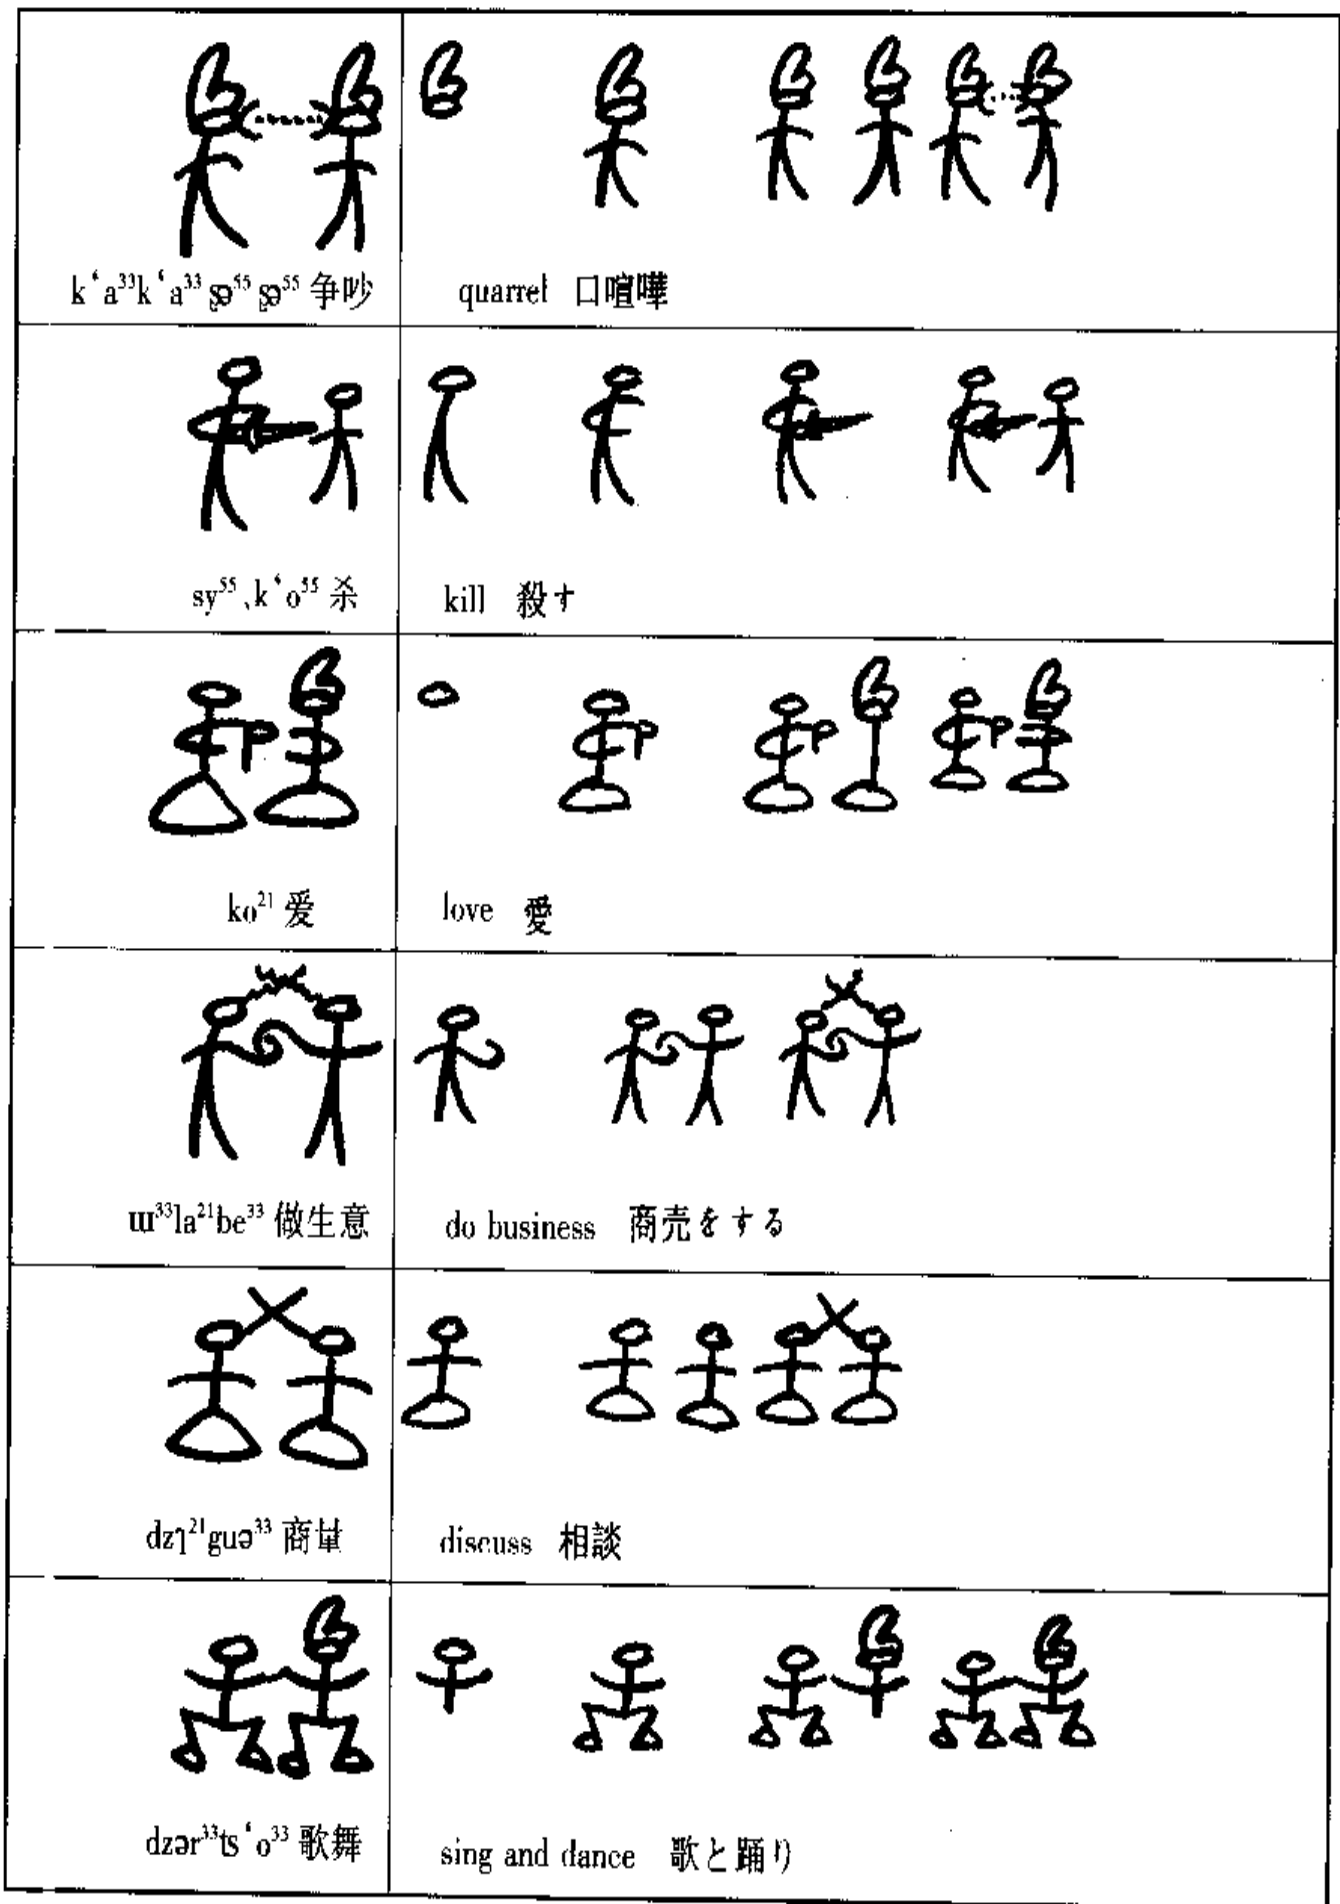 k‘a³³k‘a³³ʂə⁵⁵ʂə⁵⁵ 争吵
quarrel 口喧嘩
sy⁵⁵、k‘o⁵⁵ 杀
kill 殺す
ko²¹ 爱
love 愛
ɯ³³la²¹be³³ 做生意
do business 商売をする
dzʅ²¹guə³³ 商量
discuss 相談
dzər³³ts‘o³³ 歌舞
sing and dance 歌と踊り